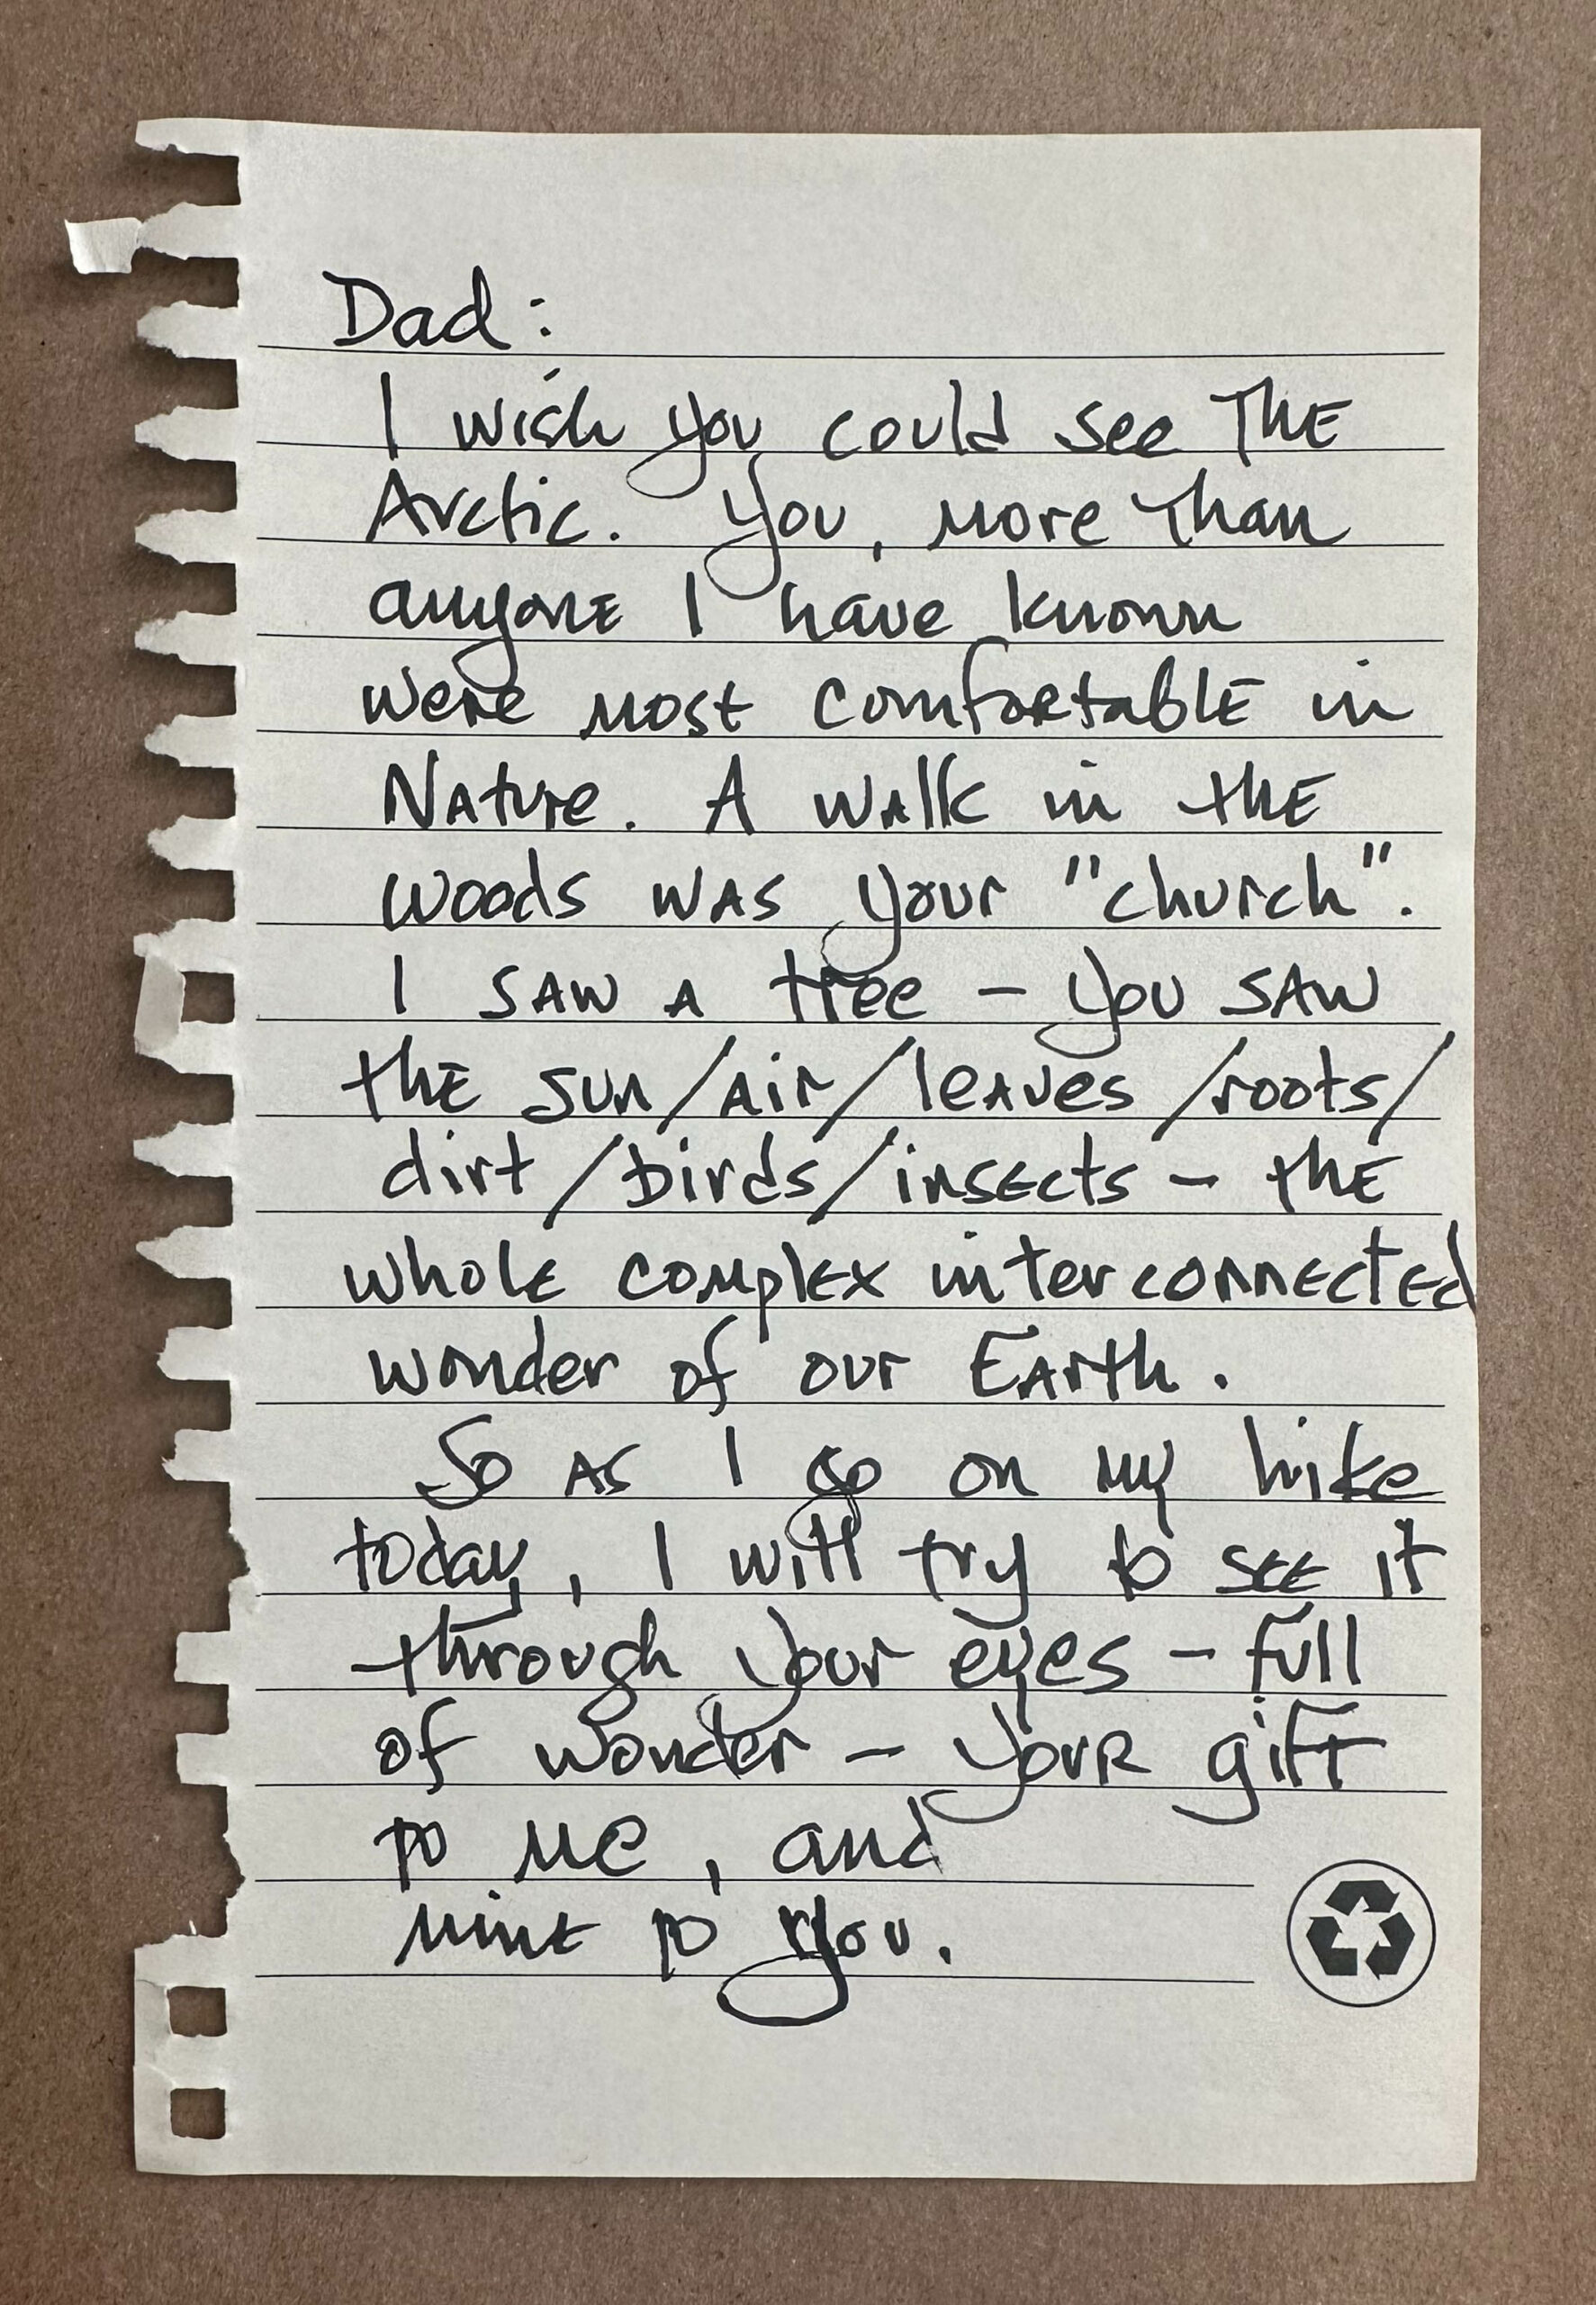 Dad:
I wish you could see the
Arctic. You, more than
anyone I have known
were most comfortable in
Nature. A walk in the
woods was your "church".
I saw a tree - you saw
the sun/air/leaves/roots/
dirt/birds/insects - the
whole complex interconnected
wonder of our Earth.
So as I go on my hike
today, I will try to see it
through your eyes - full
of wonder - your gift
to me, and
mine to you.